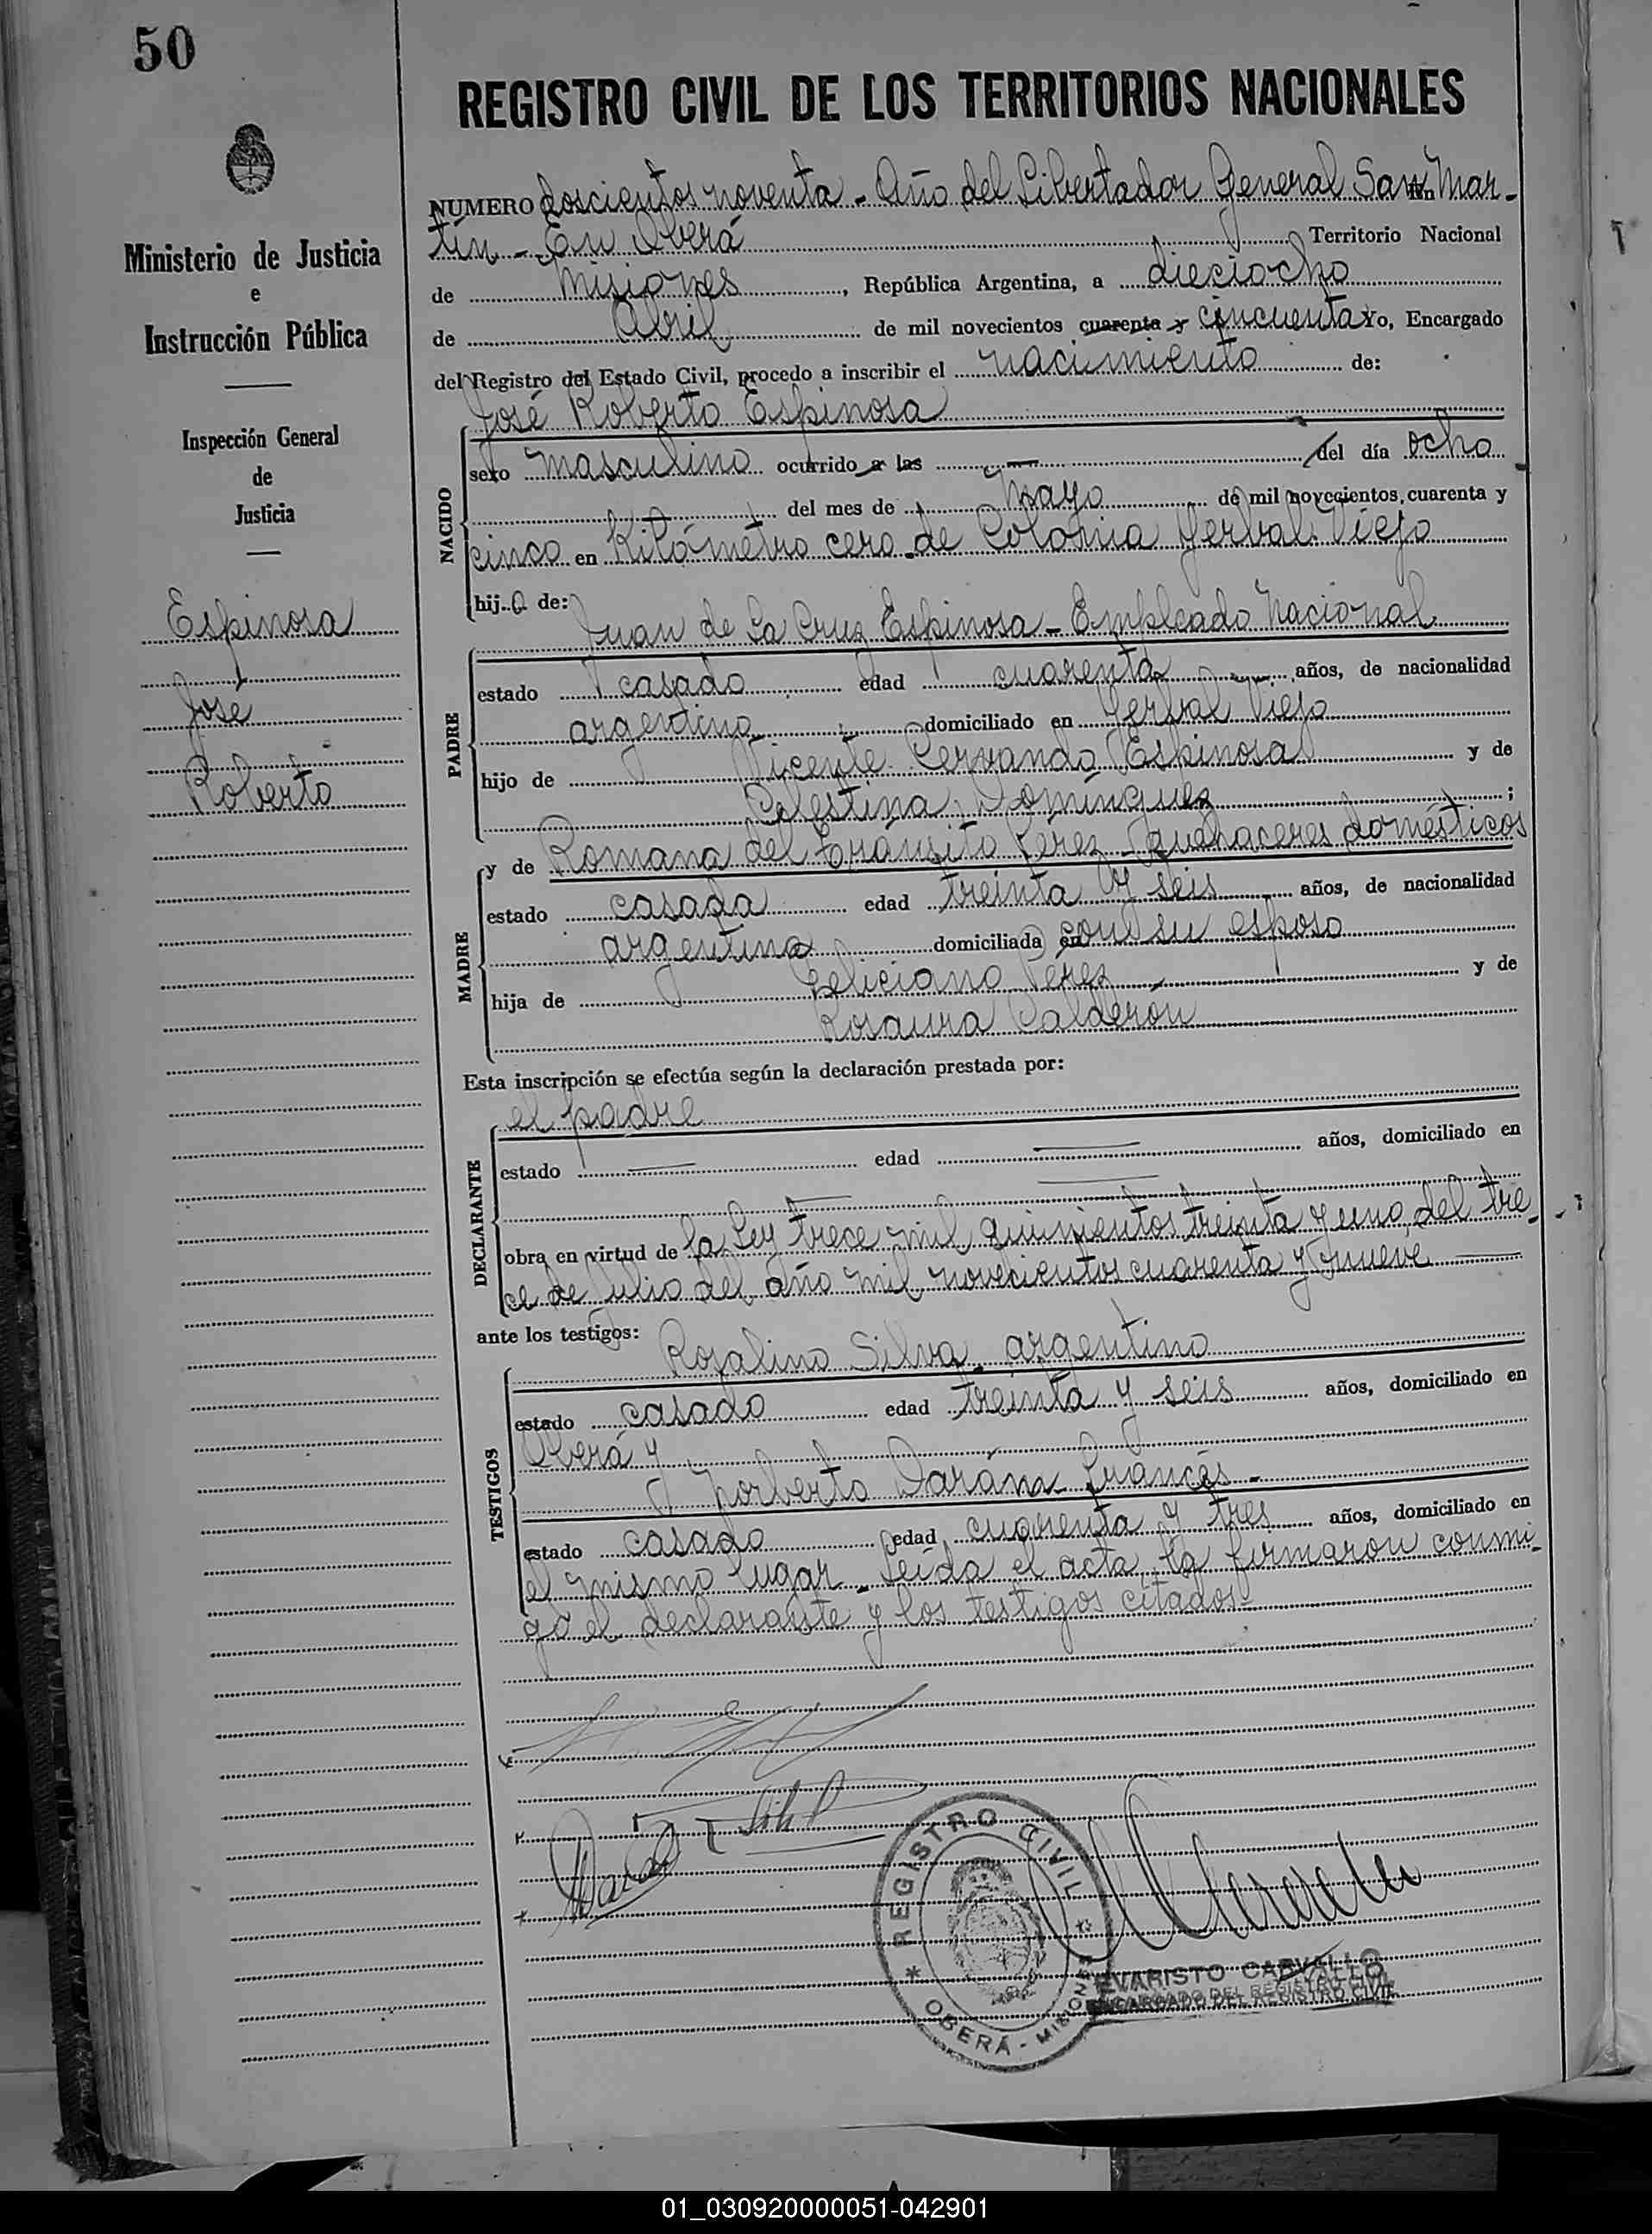 50
REGISTRO CIVIL DE LOS TERRITORIOS NACIONALES
Ministerio de Justicia
e
Instrucción Pública
Inspección General
de
Justicia
Espinosa
José
Roberto
NUMERO doscientos noventa - Año del Libertador General San Mar-
tín - En Oberá Territorio Nacional
de Misiones, República Argentina, a dieciocho
de Abril de mil novecientos cuarenta y cincuenta Yo, Encargado
del Registro del Estado Civil, procedo a inscribir el nacimiento de:
José Roberto Espinosa
NACIDO
sexo masculino ocurrido a las — del día ocho
del mes de Mayo de mil novecientos cuarenta y
cinco en Kilómetro cero de Colonia Yerbal Viejo
hijo de:
Juan de la Cruz Espinosa - Empleado Nacional
PADRE
estado casado edad cuarenta años, de nacionalidad
argentina domiciliado en Yerbal Viejo
hijo de Vicente Servando Espinosa y de
Celestina Domínguez;
y de Romana del Tránsito Pérez - quehaceres domésticos
MADRE
estado casada edad treinta y seis años, de nacionalidad
argentina domiciliada en con su esposo
hija de Feliciano Pérez y de
Rosaura Calderón
Esta inscripción se efectúa según la declaración prestada por:
el padre
DECLARANTE
estado — edad — años, domiciliado en
obra en virtud de la Ley trece mil quinientos treinta y uno, del tre-
ce de Julio del año mil novecientos cuarenta y nueve
ante los testigos:
Rosalino Silva, argentino
TESTIGOS
estado casado edad treinta y seis años, domiciliado en
Oberá y
Norberto Francés -
estado casado edad cuarenta y tres años, domiciliado en
el mismo lugar - Leída el acta, la firmaron conmi-
go el declarante y los testigos citados-
REGISTRO CIVIL
OBERÁ - MISIONES
EVARISTO CARVALLO
ENCARGADO DEL REGISTRO CIVIL
01_030920000051-042901